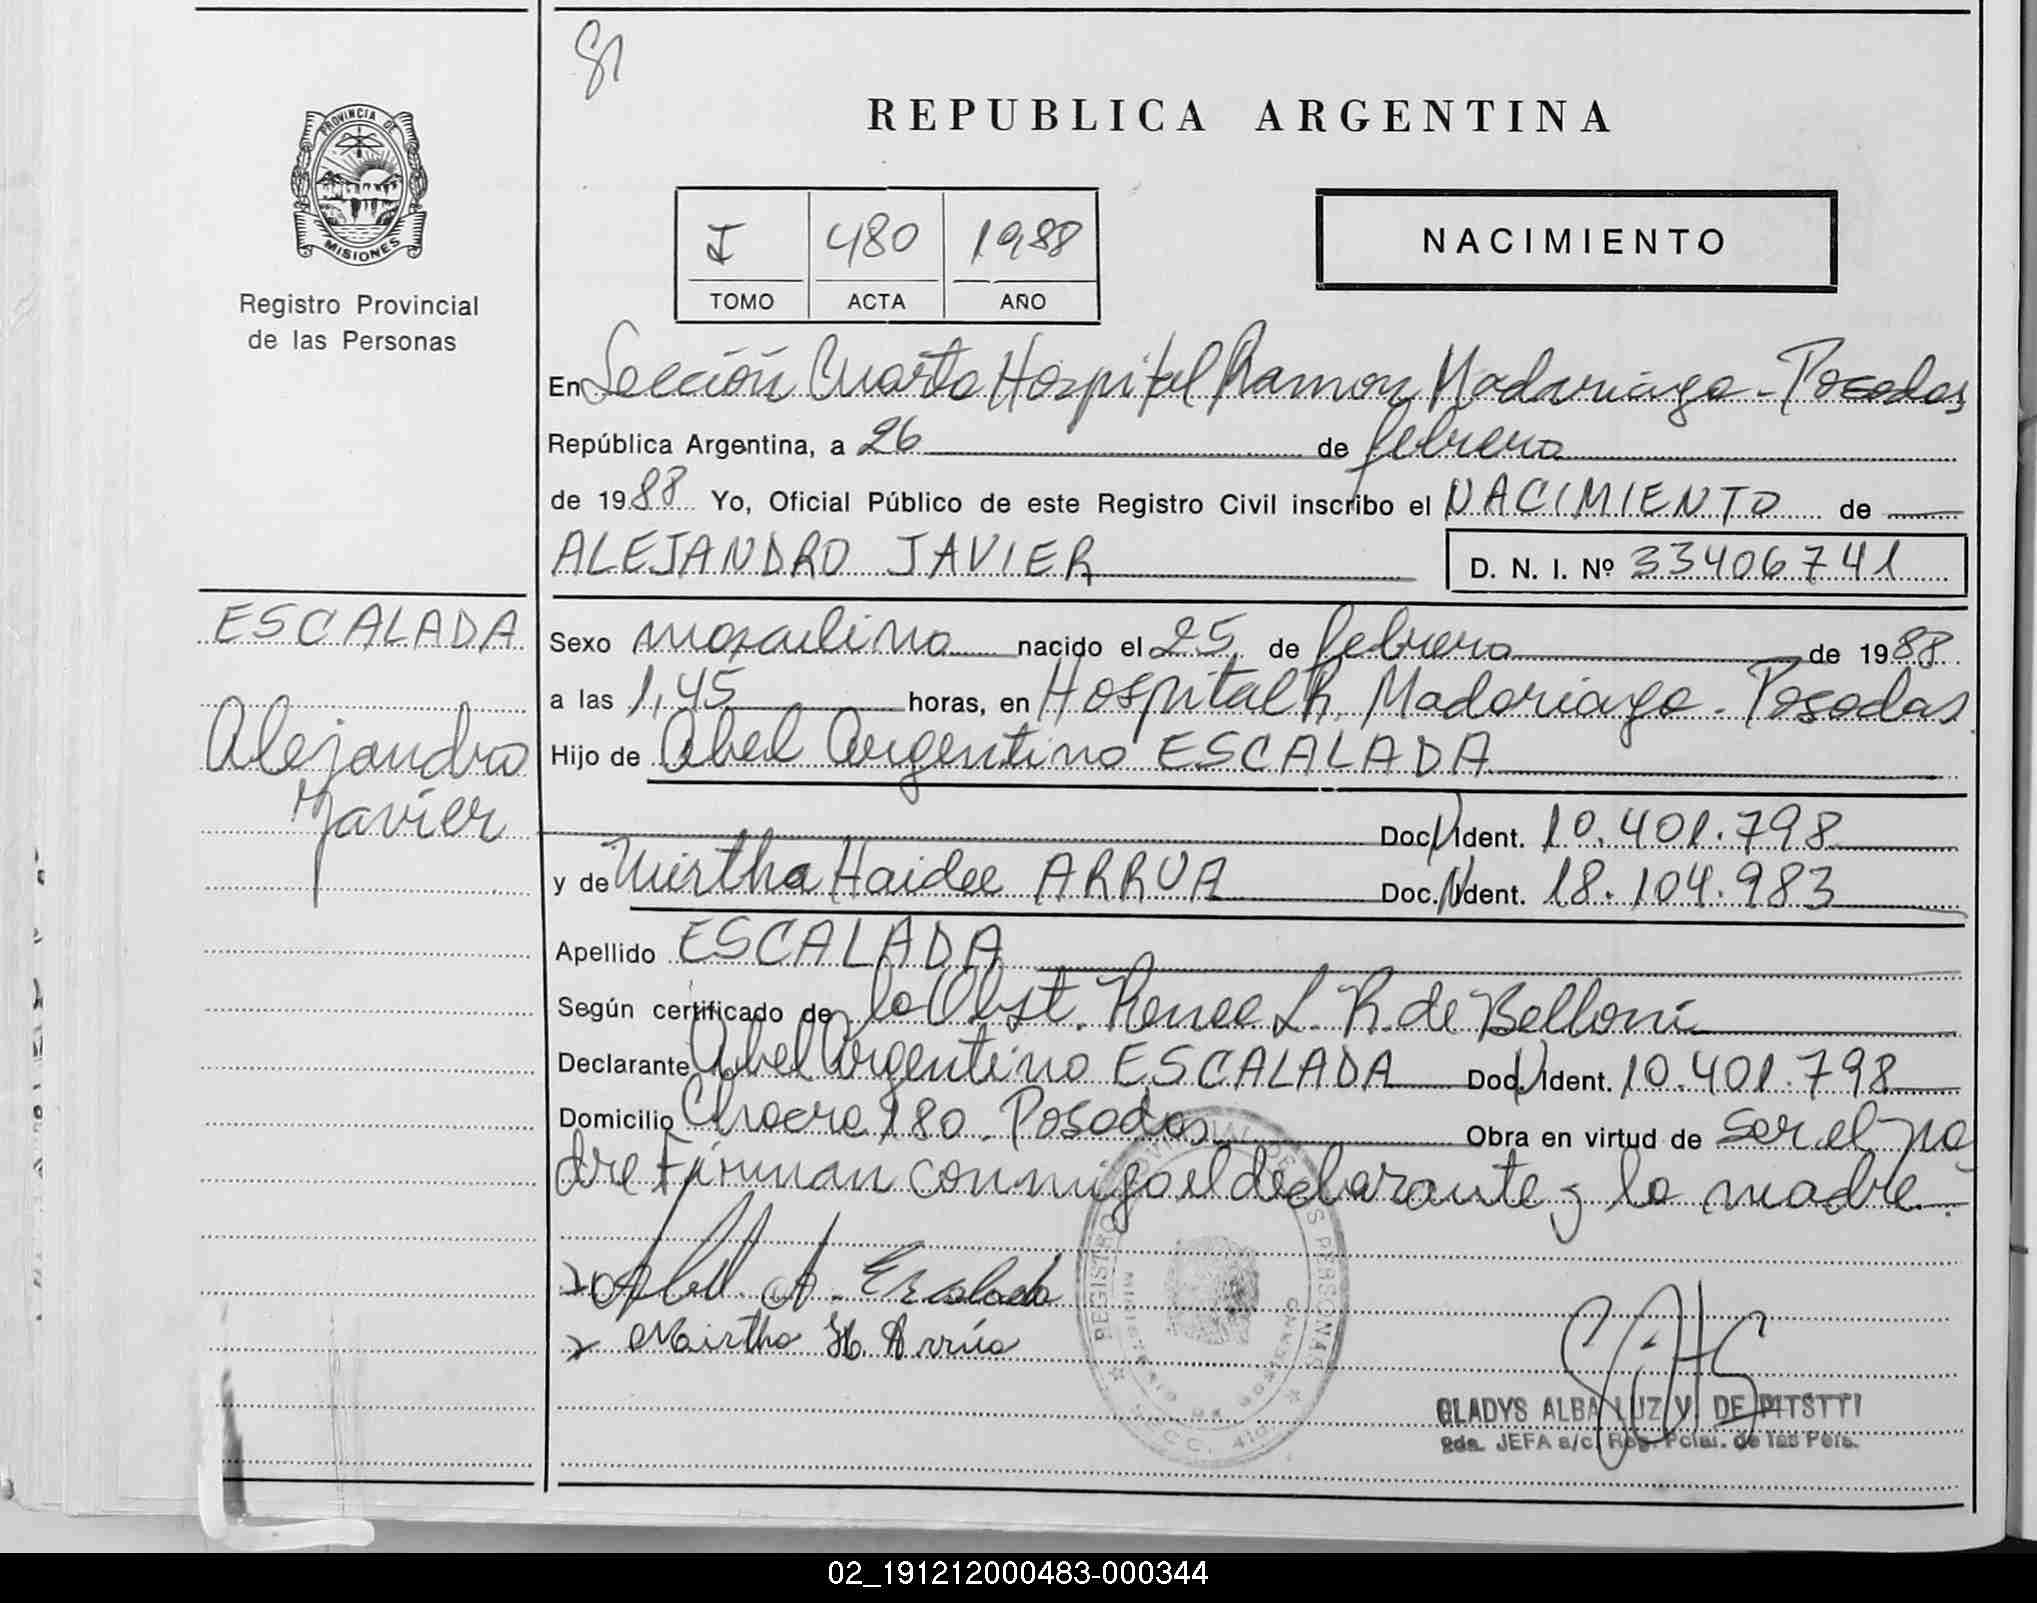 81
REPUBLICA ARGENTINA
PROVINCIA DE
MISIONES
Registro Provincial
de las Personas
I 480 1988
TOMO ACTA AÑO
NACIMIENTO
En Sección Cuarta Hospital Ramon Madariaga - Posadas
República Argentina, a 26 de febrero
de 1988 Yo, Oficial Público de este Registro Civil inscribo el NACIMIENTO de
ALEJANDRO JAVIER D. N. I. Nº 33406741
ESCALADA
Alejandro
Javier
Sexo masculino nacido el 25 de febrero de 1988
a las 1,45 horas, en Hospital R. Madariaga - Posadas
Hijo de Abel Argentino ESCALADA
Doc. Ident. 10.401.798
y de Mirtha Haidee ARRUA Doc. Ident. 18.104.983
Apellido ESCALADA
Según certificado de la Obst. Renee L. R. de Belloni
Declarante Abel Argentino ESCALADA Doc. Ident. 10.401.798
Domicilio Chacra 180 - Posadas Obra en virtud de ser el pa
dre Firman conmigo el declarante y la madre.
Abel A. Escalada
Mirtha H. Arrúa
REGISTRO PROVINCIAL DE LAS PERSONAS
GLADYS ALBA LUZ V. DE PITSTTI
2da. JEFA a/c. Reg. Pcial. de las Pers.
02_191212000483-000344